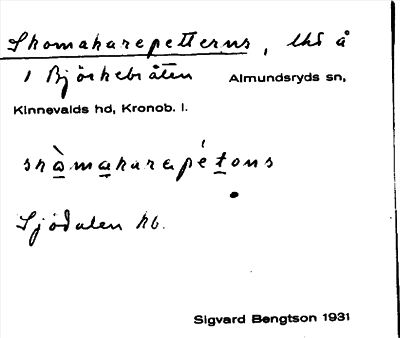 Skomakarepetterns, lhs å
1 Björkebråten Almundsryds sn,
Kinnevalds hd, Kronob. l.
skòmakarapétons
Sjödalen hb.
Sigvard Bengtson 1931